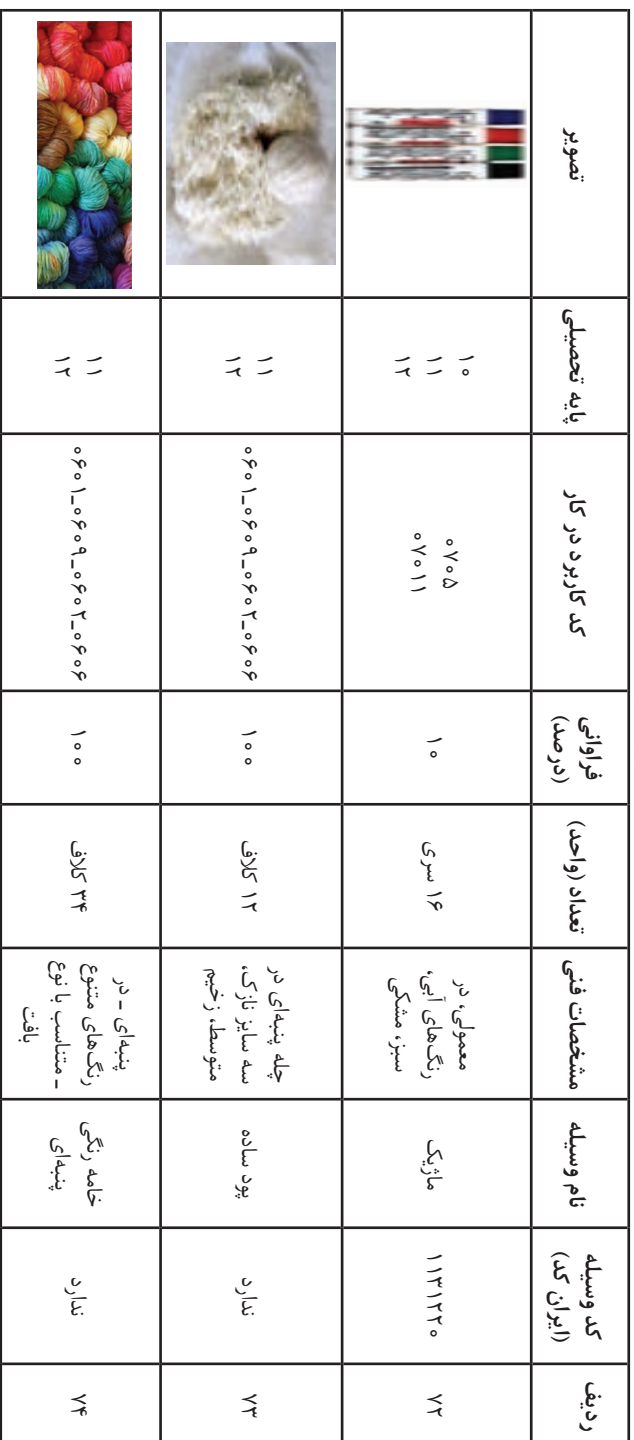 ردیف
کد وسیله
(ایران کد)
نام وسیله
مشخصات فنی
تعداد (واحد)
فراوانی
(درصد)
کد کاربرد در کار
پایه تحصیلی
تصویر
۷۲
۱۱۳۱۲۲۰
ماژیک
معمولی، در
رنگ‌های آبی،
سبز، مشکی
۱۶ سری
۱۰
۰۷۰۵
۰۷۰۱۱
۱۰
۱۱
۱۲
۷۳
ندارد
پود ساده
چله پنبه‌ای در
سه سایز نازک،
متوسط، زخیم
۱۲ کلاف
۱۰۰
۰۶۰۱_۰۶۰۹_۰۶۰۲_۰۶۰۶
۱۱
۱۲
۷۴
ندارد
خامه رنگی
پنبه‌ای
پنبه‌ای _ در
رنگ‌های متنوع
_ متناسب با نوع
بافت
۳۴ کلاف
۱۰۰
۰۶۰۱_۰۶۰۹_۰۶۰۲_۰۶۰۶
۱۱
۱۲